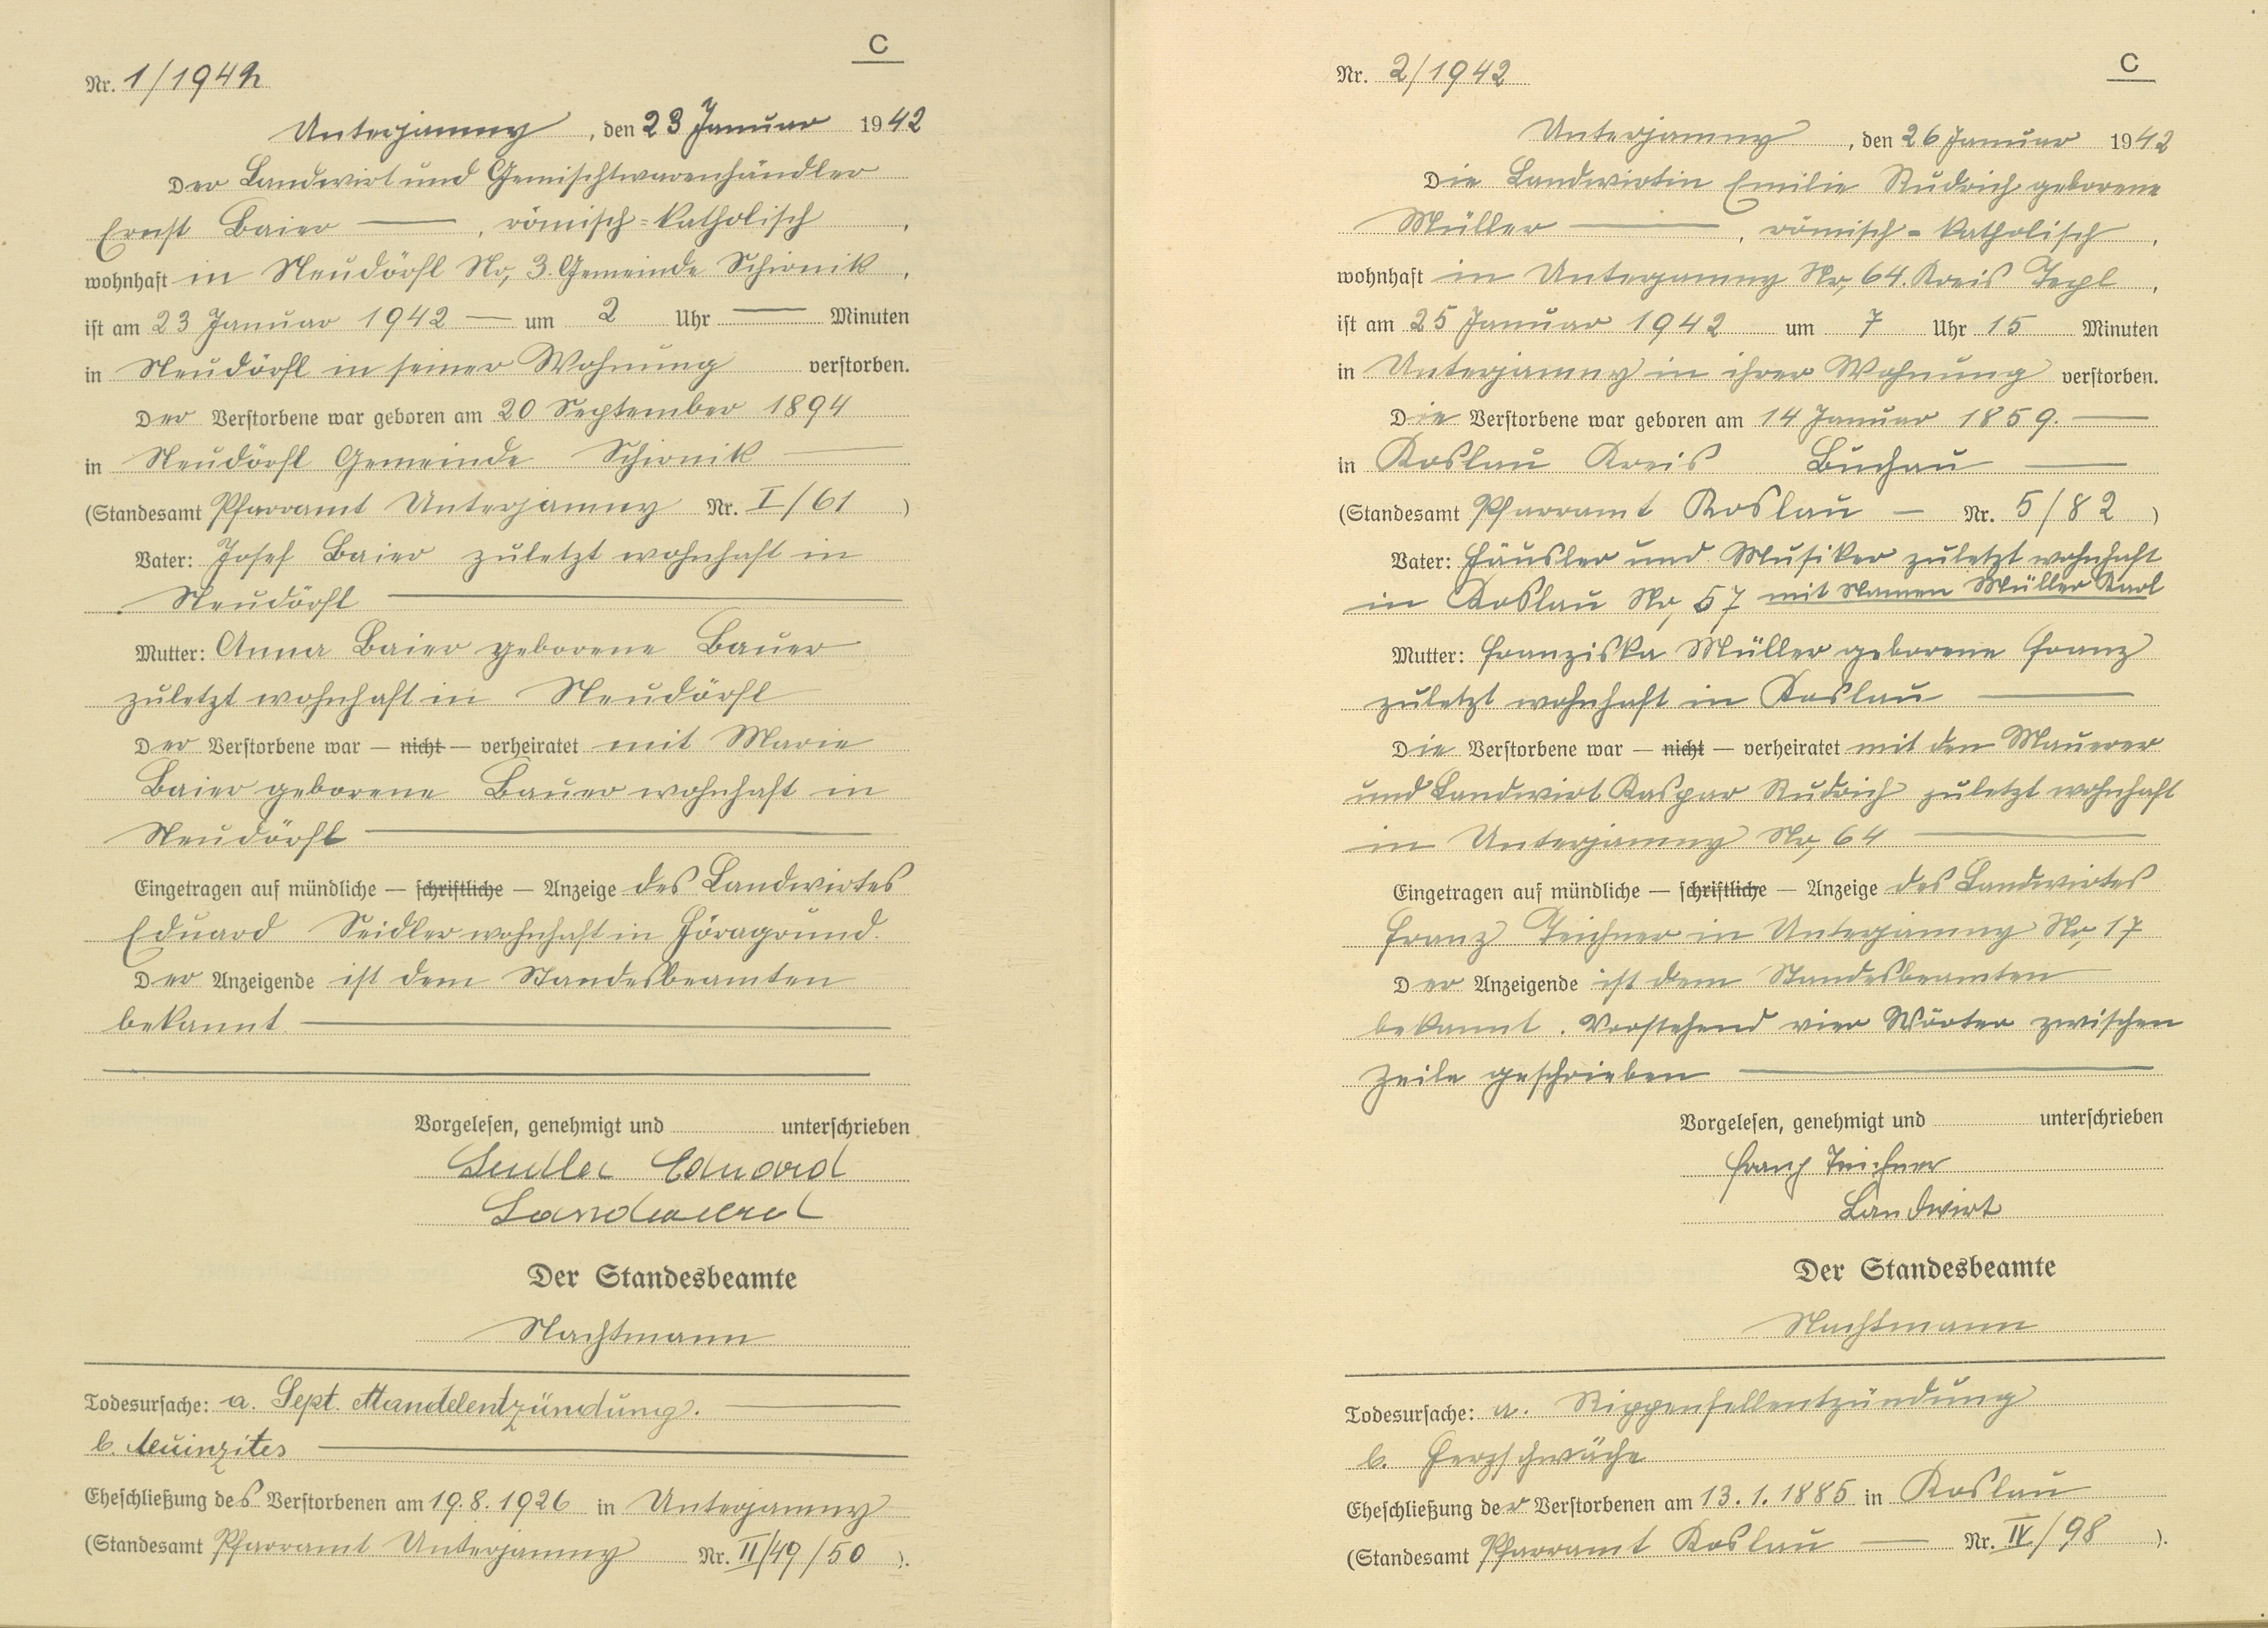 C
Nr. 1/1942
Unterjamny, den 23 Januar 1942
Der Landwirt und Gemischtwarenhändler
Ernst Baier —, römisch=katholisch,
wohnhaft in Neudörfl Nr, 3. Gemeinde Schirnik,
ist am 23 Januar 1942 — um 2 Uhr — Minuten
in Neudörfl in seiner Wohnung verstorben.
Der Verstorbene war geboren am 20 September 1894
in Neudörfl Gemeinde Schirnik —
(Standesamt Pfarramt Unterjamny Nr. I/61 )
Vater: Josef Baier zuletzt wohnhaft in
Neudörfl —
Mutter: Anna Baier geborene Bauer
zuletzt wohnhaft in Neudörfl
Der Verstorbene war — nicht — verheiratet mit Marie
Baier geborene Bauer wohnhaft in
Neudörfl —
Eingetragen auf mündliche — schriftliche — Anzeige des Landwirtes
Eduard Seidler wohnhaft in Höragrund.
Der Anzeigende ist dem Standesbeamten
bekannt. —
Vorgelesen, genehmigt und unterschrieben
Seidler Eduard
Der Standesbeamte
Nachtmann
Todesursache: a. Sept. Mandelentzündung. —
b.
Eheschließung des Verstorbenen am 19.8.1926 in Unterjamny
(Standesamt Pfarramt Unterjamny Nr. II/49/50 ).
C
Nr. 2/1942
Unterjamny, den 26 Januar 1942
Die Landwirtin Emilie Rudrich geborene
Müller —, römisch=katholisch,
wohnhaft in Unterjamny Nr, 64. Kreis Tepl,
ist am 25 Januar 1942 um 7 Uhr 15 Minuten
in Unterjamny in ihrer Wohnung verstorben.
Die Verstorbene war geboren am 14 Januar 1859. —
in Koslau Kreis Buchau —
(Standesamt Pfarramt Koslau — Nr. 5/82 )
Vater: Häusler und Musiker zuletzt wohnhaft
in Koslau Nr, 57 mit Namen Müller Karl
Mutter: Franziska Müller geborene Franz
zuletzt wohnhaft in Koslau —
Die Verstorbene war — nicht — verheiratet mit den Mauerer
und Landwirt Kaspar Rudrich zuletzt wohnhaft
in Unterjamny Nr, 64 —
Eingetragen auf mündliche — schriftliche — Anzeige des Landwirtes
Franz Teichner in Unterjamny Nr, 17
Der Anzeigende ist dem Standesbeamten
bekannt. Vorstehend vier Wörter zwischen
Zeile geschrieben —
Vorgelesen, genehmigt und unterschrieben
Franz Teichner
Landwirt
Der Standesbeamte
Nachtmann
Todesursache: a. Rippenfellentzündung
b. Herzschwäche
Eheschließung der Verstorbenen am 13.1.1885 in Koslau
(Standesamt Pfarramt Koslau — Nr. IV/98 ).